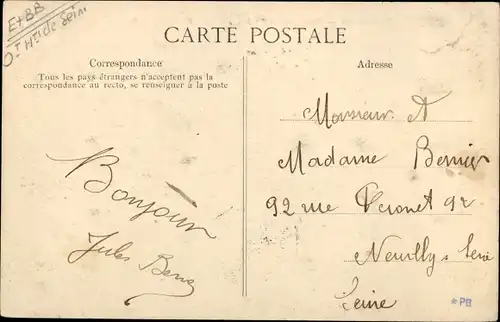 E+BB
CARTE POSTALE
Correspondance
Tous les pays étrangers n'acceptent pas la
correspondance au recto, se renseigner à la poste
Adresse
Bonjour
Jules
Monsieur
Madame Bernier
92 rue Peronet 92
Neuilly s Seine
Seine
*PB